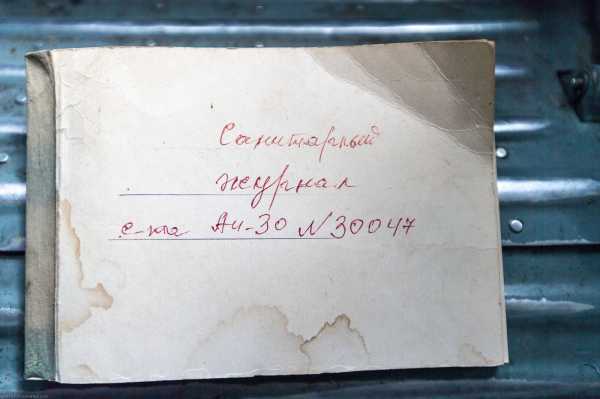 Санитарный
журнал
с-та Ан-30 N 30047